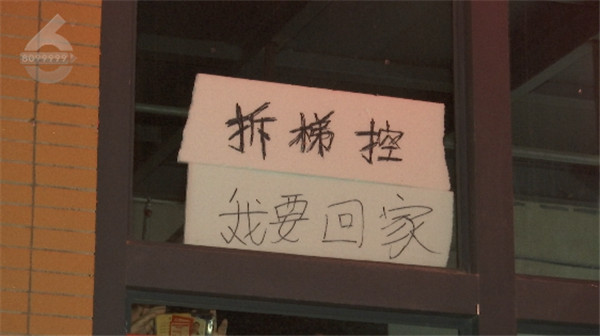 6
8099999
拆梯控
我要回家